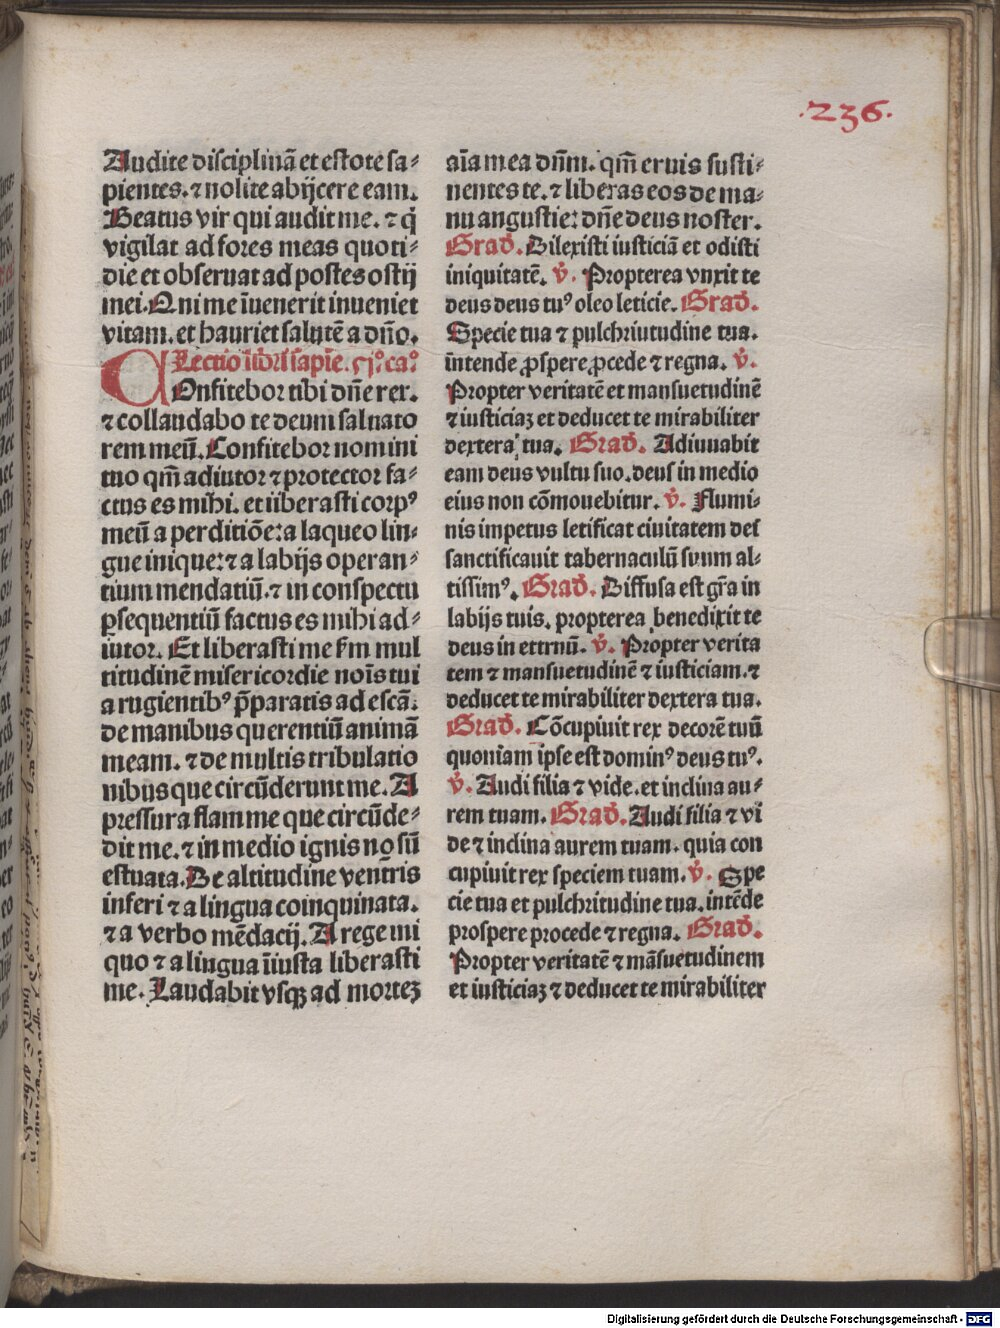 .236.
Audite disciplinā et estote sa⸗
pientes. ⁊ nolite abijcere eam.
Beatus vir qui audit me. ⁊ q̇
vigilat ad fores meas quoti⸗
die et obseruat ad postes ostij
mei. Qui me īuenerit inueniet
vitam. et hauriet salutē a dn̄o.
Lectio libri sapīe. .ca°
COnfitebor tibi dn̄e rex.
⁊ collaudabo te deum saluato
rem meū. Confitebor nomini
tuo qm̄ adiutor ⁊ protector fa⸗
ctus es mihi. et liberasti corpꝰ
meū a perditiōe: a laqueo lin⸗
gue inique: ⁊ a labijs operan⸗
tium mendatiū. ⁊ in conspectu
ꝑsequentiū factus es mihi ad⸗
iutor. Et liberasti me ẜm mul
titudinē misericordie noīs tui
a rugientibꝰ p̄paratis ad escā.
de manibus querentiū animā
meam. ⁊ de multis tribulatio
nibus que circūderunt me. A
pressura flamme que circūde⸗
dit me. ⁊ in medio ignis nō sū
estuata. De altitudine ventris
inferi ⁊ a lingua coinquinata.
⁊ a verbo mēdacij. A rege ini
quo ⁊ a lingua īiusta liberasti
me. Laudabit vsqꝫ ad morteꝫ
aīa mea dn̄m. qm̄ eruis susti⸗
nentes te. ⁊ liberas eos de ma⸗
nu angustie: dn̄e deus noster.
Grad̄. Dilexisti iusticiā et odisti
iniquitatē. v̄. Propterea vnxit te
deus deus tuꝰ oleo leticie. Grad̄.
Specie tua ⁊ pulchriutudine tua.
intende ꝓspere ꝓcede ⁊ regna. v̄.
Propter veritatē et mansuetudinē
⁊ iusticiaꝫ et deducet te mirabiliter
dextera tua. Grad̄. Adiuuabit
eam deus vultu suo. deus in medio
eius non cōmouebitur. v̄. Flumi⸗
nis impetus letificat ciuitatem dei
sanctificauit tabernaculū suum al⸗
tissimꝰ. Grad̄. Diffusa est gr̄a in
labijs tuis. propterea benedixit te
deus in ettrnū. v̄. Propter verita
tem ⁊ mansuetudinē ⁊ iusticiam. ⁊
deducet te mirabiliter dextera tua.
Grad̄. Cōcupiuit rex decorē tuū
quoniam ipse est dominꝰ deus tuꝰ.
v̄. Audi filia ⁊ vide. et inclina au⸗
rem tuam. Grad̄. Audi filia ⁊ vi
de ⁊ inclina aurem tuam. quia con
cupiuit rex speciem tuam. v̄. Spe
cie tua et pulchritudine tua. intēde
prospere procede ⁊ regna. Grad̄.
Propter veritatē ⁊ māsuetudinem
et iusticiaꝫ ⁊ deducet te mirabiliter
Digitalisierung gefördert durch die Deutsche Forschungsgemeinschaft - DFG